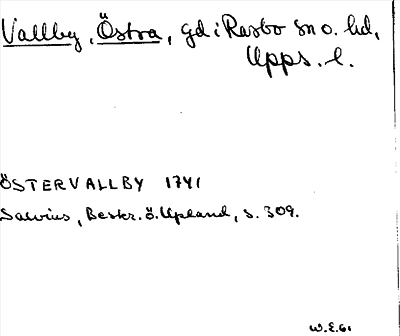 Vallby, Östra, gd i Rasbo sn o. hd,
Upps. l.
ÖSTERVALLBY 1741
Salvius, Beskr. ö. Upland, s. 309.
W.E.61